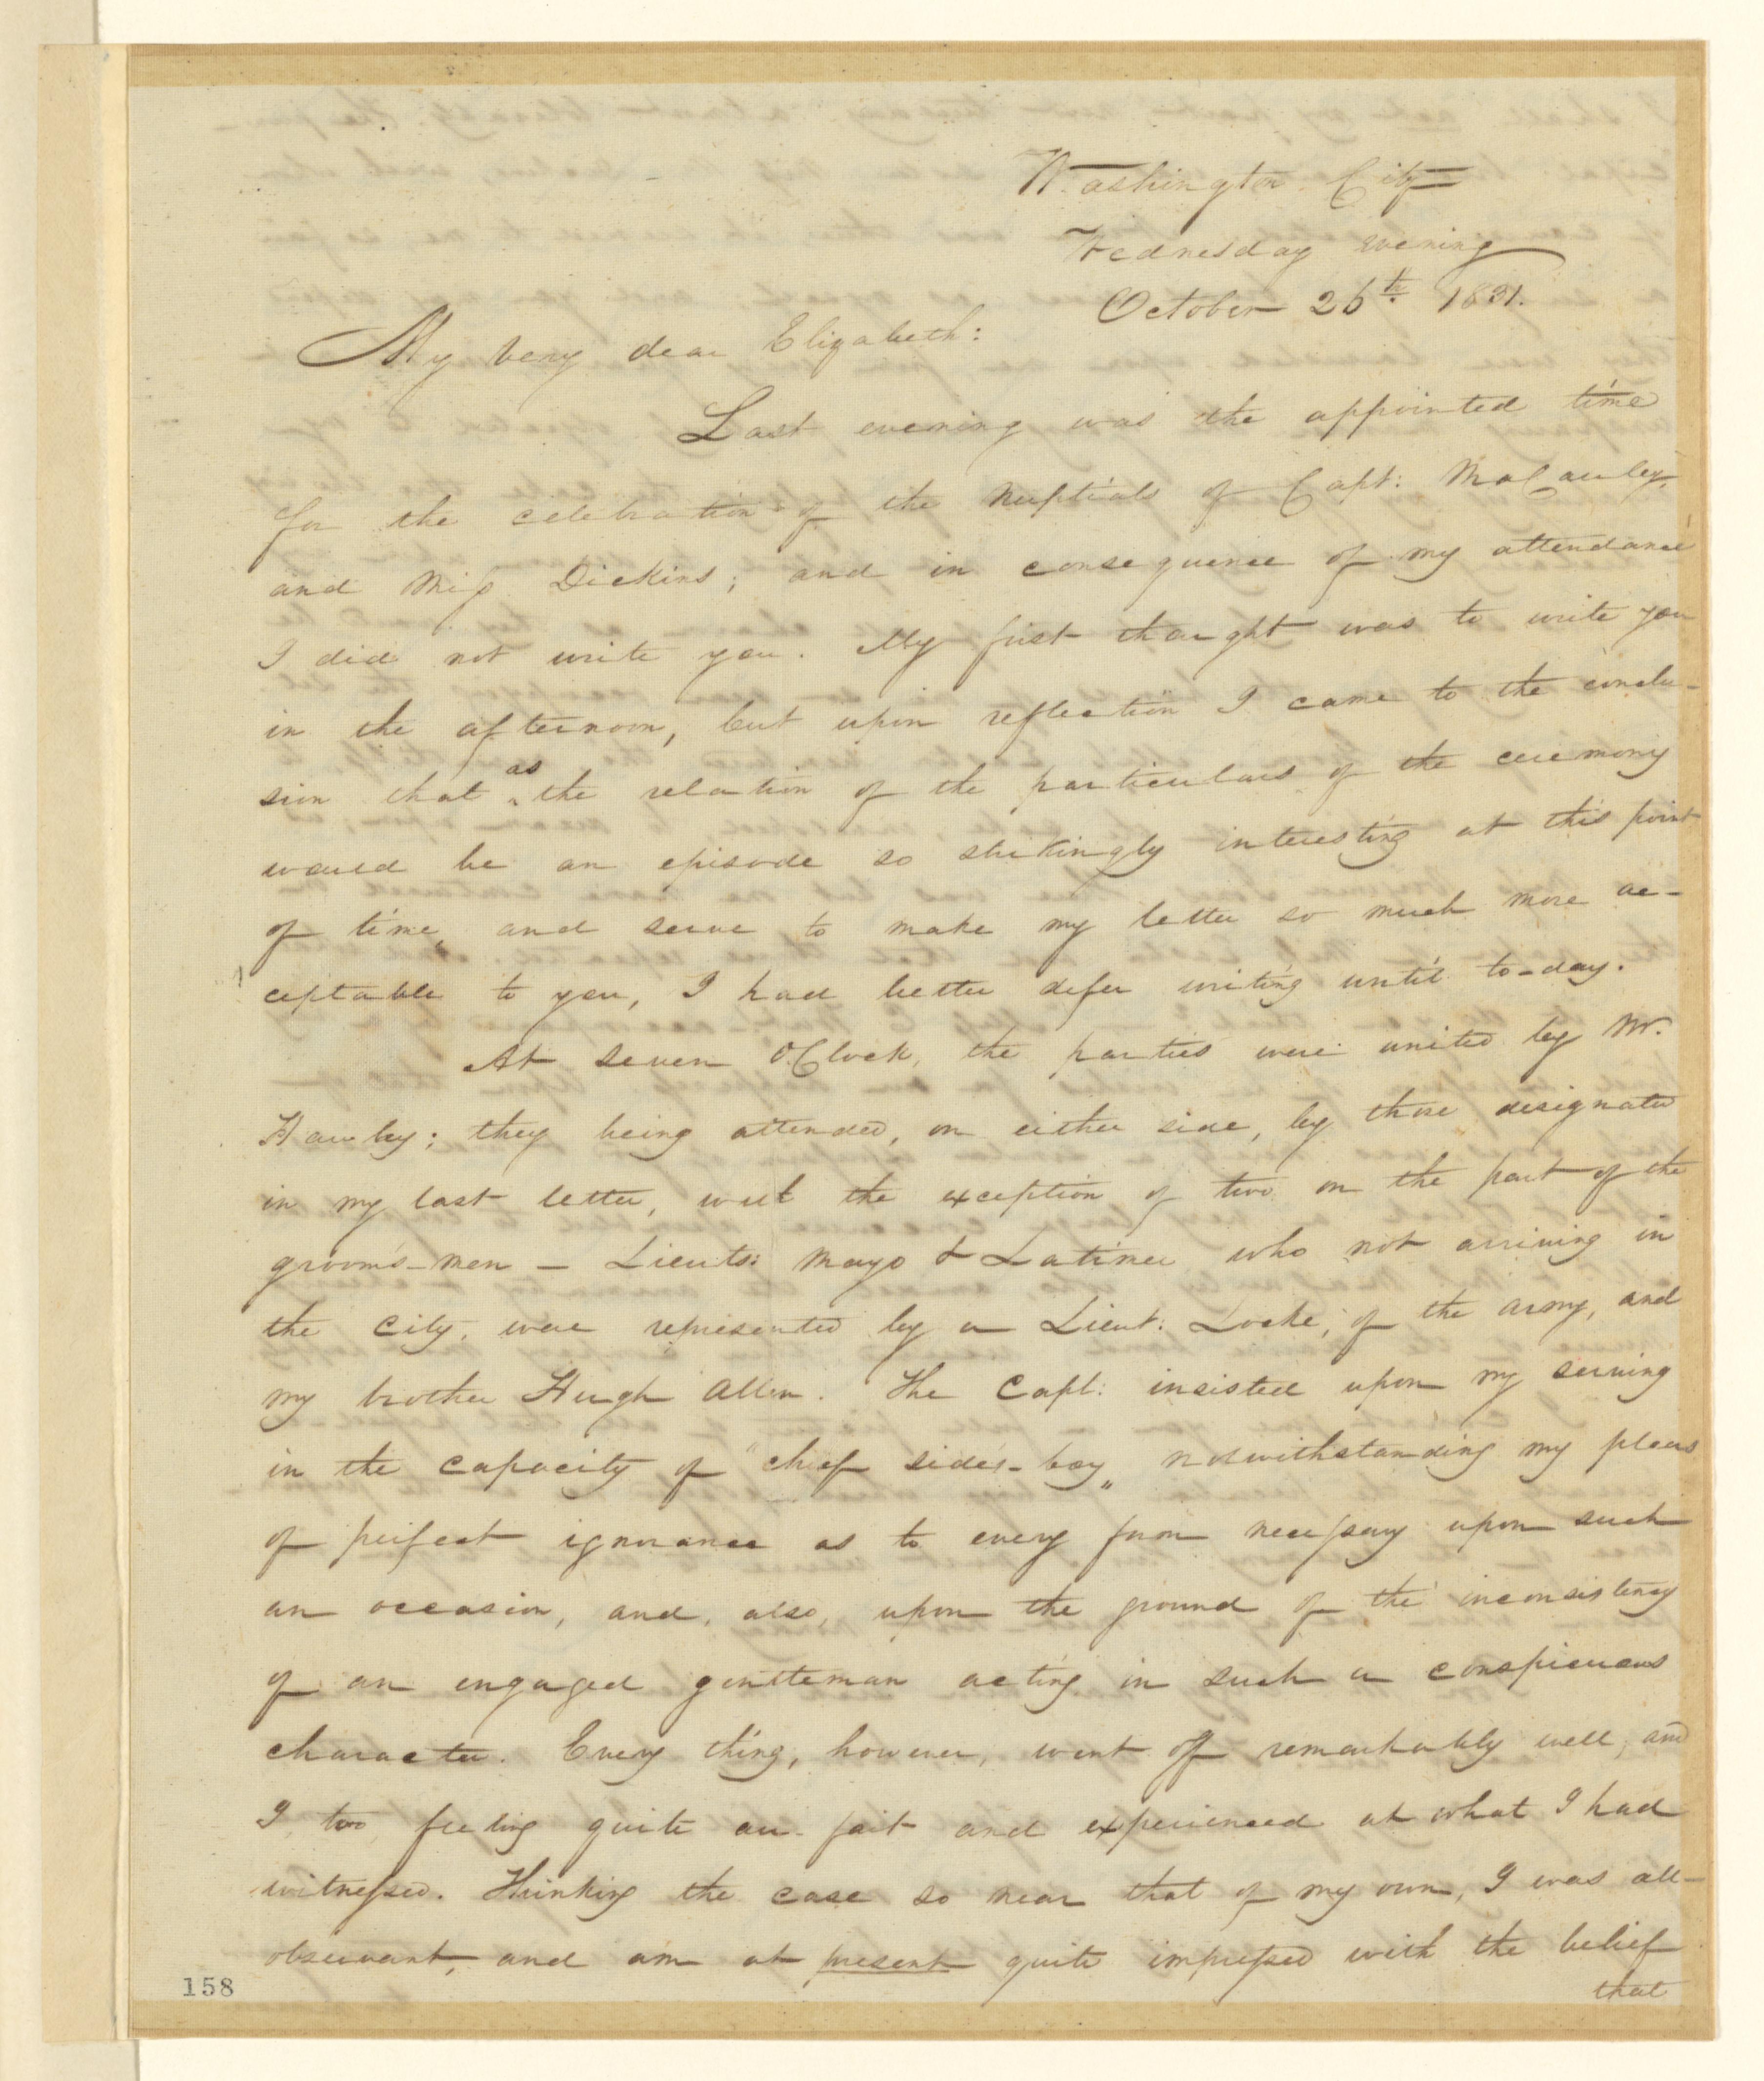 Washington City
Wednesday evening
October 26th 1831.
My very dear Elizabeth:
Last evening was the appointed time
for the celebration of the nuptials of Capt: McCauley
and Miss Dickins; and in consequence of my attendance
I did not write you. My first thought was to write you
in the afternoon, but upon reflection I came to the conclu-
sion that as the relation of the particulars of the ceremony
would be an episode so strikingly interesting at this point
of time, and serve to make my letter so much more ac-
ceptable to you, I had better defer writing until to-day.
At seven O.Clock, the parties were united by Mr.
Hawley; they being attended, on either side, by those designated
in my last letter, with the exception of two on the part of the
grooms-men — Lieuts: Mayo & Latimer who not arriving in
the City, were represented by a Lieut: Locke, of the army, and
my brother Hugh Allen. The Capt: insisted upon my serving
in the capacity of "chief side's-boy" notwithstanding my pleas
of perfect ignorance as to every form necessary upon such
an occasion, and, also, upon the ground of the inconsistency
of an engaged gentleman acting in such a conspicuous
character. Every thing, however, went off remarkably well, and
I too, feeling quite au-fait and experienced at what I had
witnessed. Thinking the case so near that of my own, I was all-
observant, and am at present quite impressed with the belief
that
158